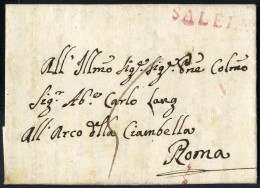 SALER
All'Illmo Sigr. Sigr. Pne Colmo
Sigr Abe. Carlo Lang
all'Arco della Ciambella
Roma